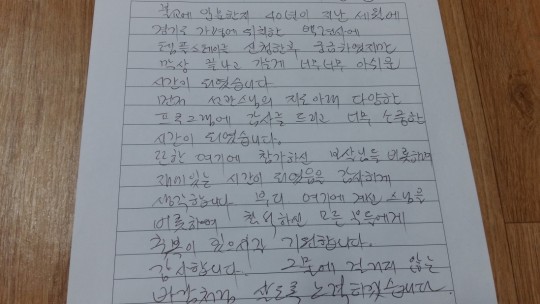 불교에 입문한지 40년이 지난 세월에
경기도 가평에 위치한 백련사에
템플스테이를 신청한후 궁금하였지만
막상 끝나고 가는게 너무너무 아쉬운
시간이 되었습니다
먼저 선과스님의 지도아래 다양한
프로그램에 감사를 드리고 너무 소중한
시간이 되었습니다.
또한 여기에 참가하신 보살님들 비롯하여
재미있는 시간이 되었음을 감사하게
생각합니다 부디 여기에 계신 스님을
비롯하여 참석하신 모든 분들에게
축복이 있으시길 기원합니다.
감사합니다. 그물에 걸리지 않는
바람처럼 살도록 노력하겠습니다.